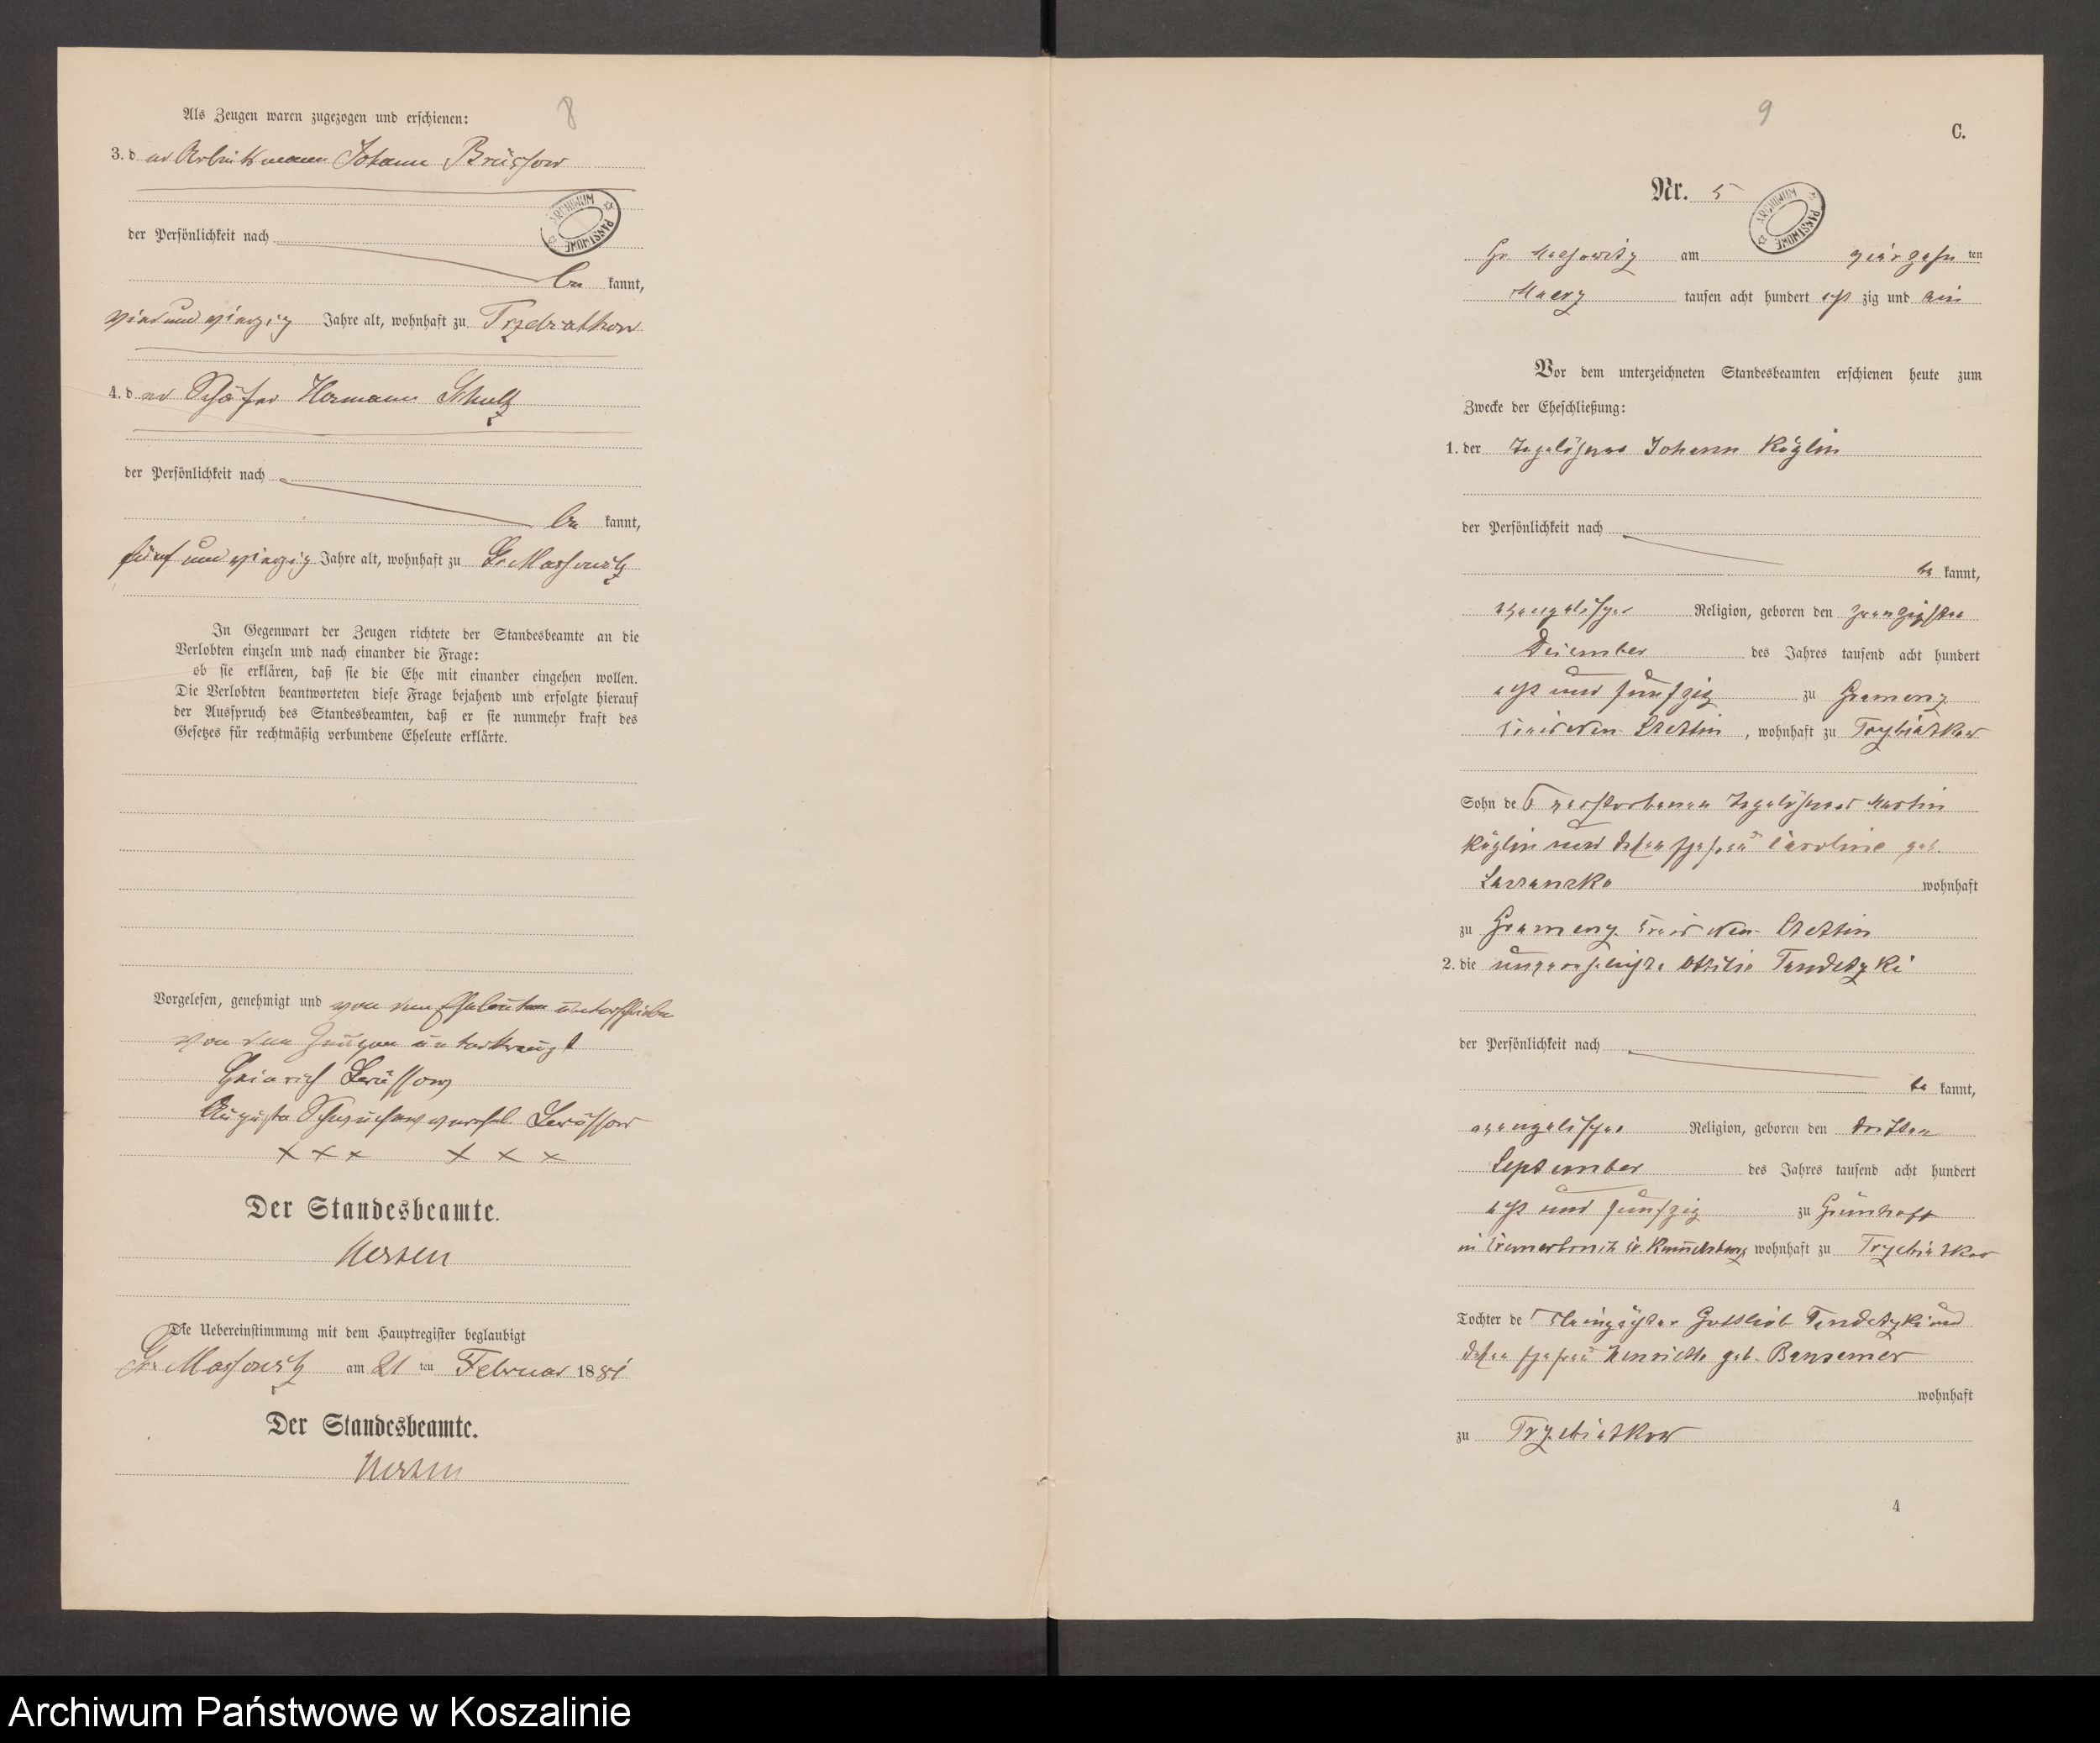 8
Als Zeugen waren zugezogen und erschienen:
3. der Arbeitsmann Johann Brüssow
der Persönlichkeit nach
be kannt,
vier und vierzig Jahre alt, wohnhaft zu
4. der Schäfer Hermann Schultz
der Persönlichkeit nach
be kannt,
fünf und vierzig Jahre alt, wohnhaft zu Gr. Massowitz
In Gegenwart der Zeugen richtete der Standesbeamte an die
Verlobten einzeln und nach einander die Frage:
ob sie erklären, daß sie die Ehe mit einander eingehen wollen.
Die Verlobten beantworteten diese Frage bejahend und erfolgte hierauf
der Ausspruch des Standesbeamten, daß er sie nunmehr kraft des
Gesetzes für rechtmäßig verbundene Eheleute erklärte.
Vorgelesen, genehmigt und von den Eheleuten unterschrieben
von den Zeugen unterkreuzt
Heinrich Brüssow
Auguste Brüssow
+++ +++
Der Standesbeamte.
Die Uebereinstimmung mit dem Hauptregister beglaubigt
Gr. Massowitz am 21 ten Februar 1881
Der Standesbeamte.
ARCHIWUM PAŃSTWOWE
9
C.
Nr. 5
ARCHIWUM PAŃSTWOWE
Gr. Massowitz am vierzehn ten
Maerz tausen acht hundert acht zig und ein
Vor dem unterzeichneten Standesbeamten erschienen heute zum
Zwecke der Eheschließung:
1. der Tagelöhner Johann Köglin
der Persönlichkeit nach
be kannt,
evangelischer Religion, geboren den zwanzigsten
Dezember des Jahres tausend acht hundert
acht und fünfzig zu Gramenz
Kreis Neu-Stettin, wohnhaft zu Trzebiatkow
Sohn des verstorbenen Tagelöhners Martin
Köglin und dessen Ehefrau Caroline geb.
wohnhaft
zu Gramenz Kreis Neu-Stettin
2. die unverehelichte Ottilie Tandetzki
der Persönlichkeit nach
be kannt,
evangelischer Religion, geboren den dritten
September des Jahres tausend acht hundert
acht und fünfzig zu Grünhof
in Kr. Rummelsburg wohnhaft zu Trzebiatkow
Tochter des Gottlieb Tandetzki und
dessen Ehefrau Henriette geb. Bansemer
wohnhaft
zu Trzebiatkow
4
Archiwum Państwowe w Koszalinie